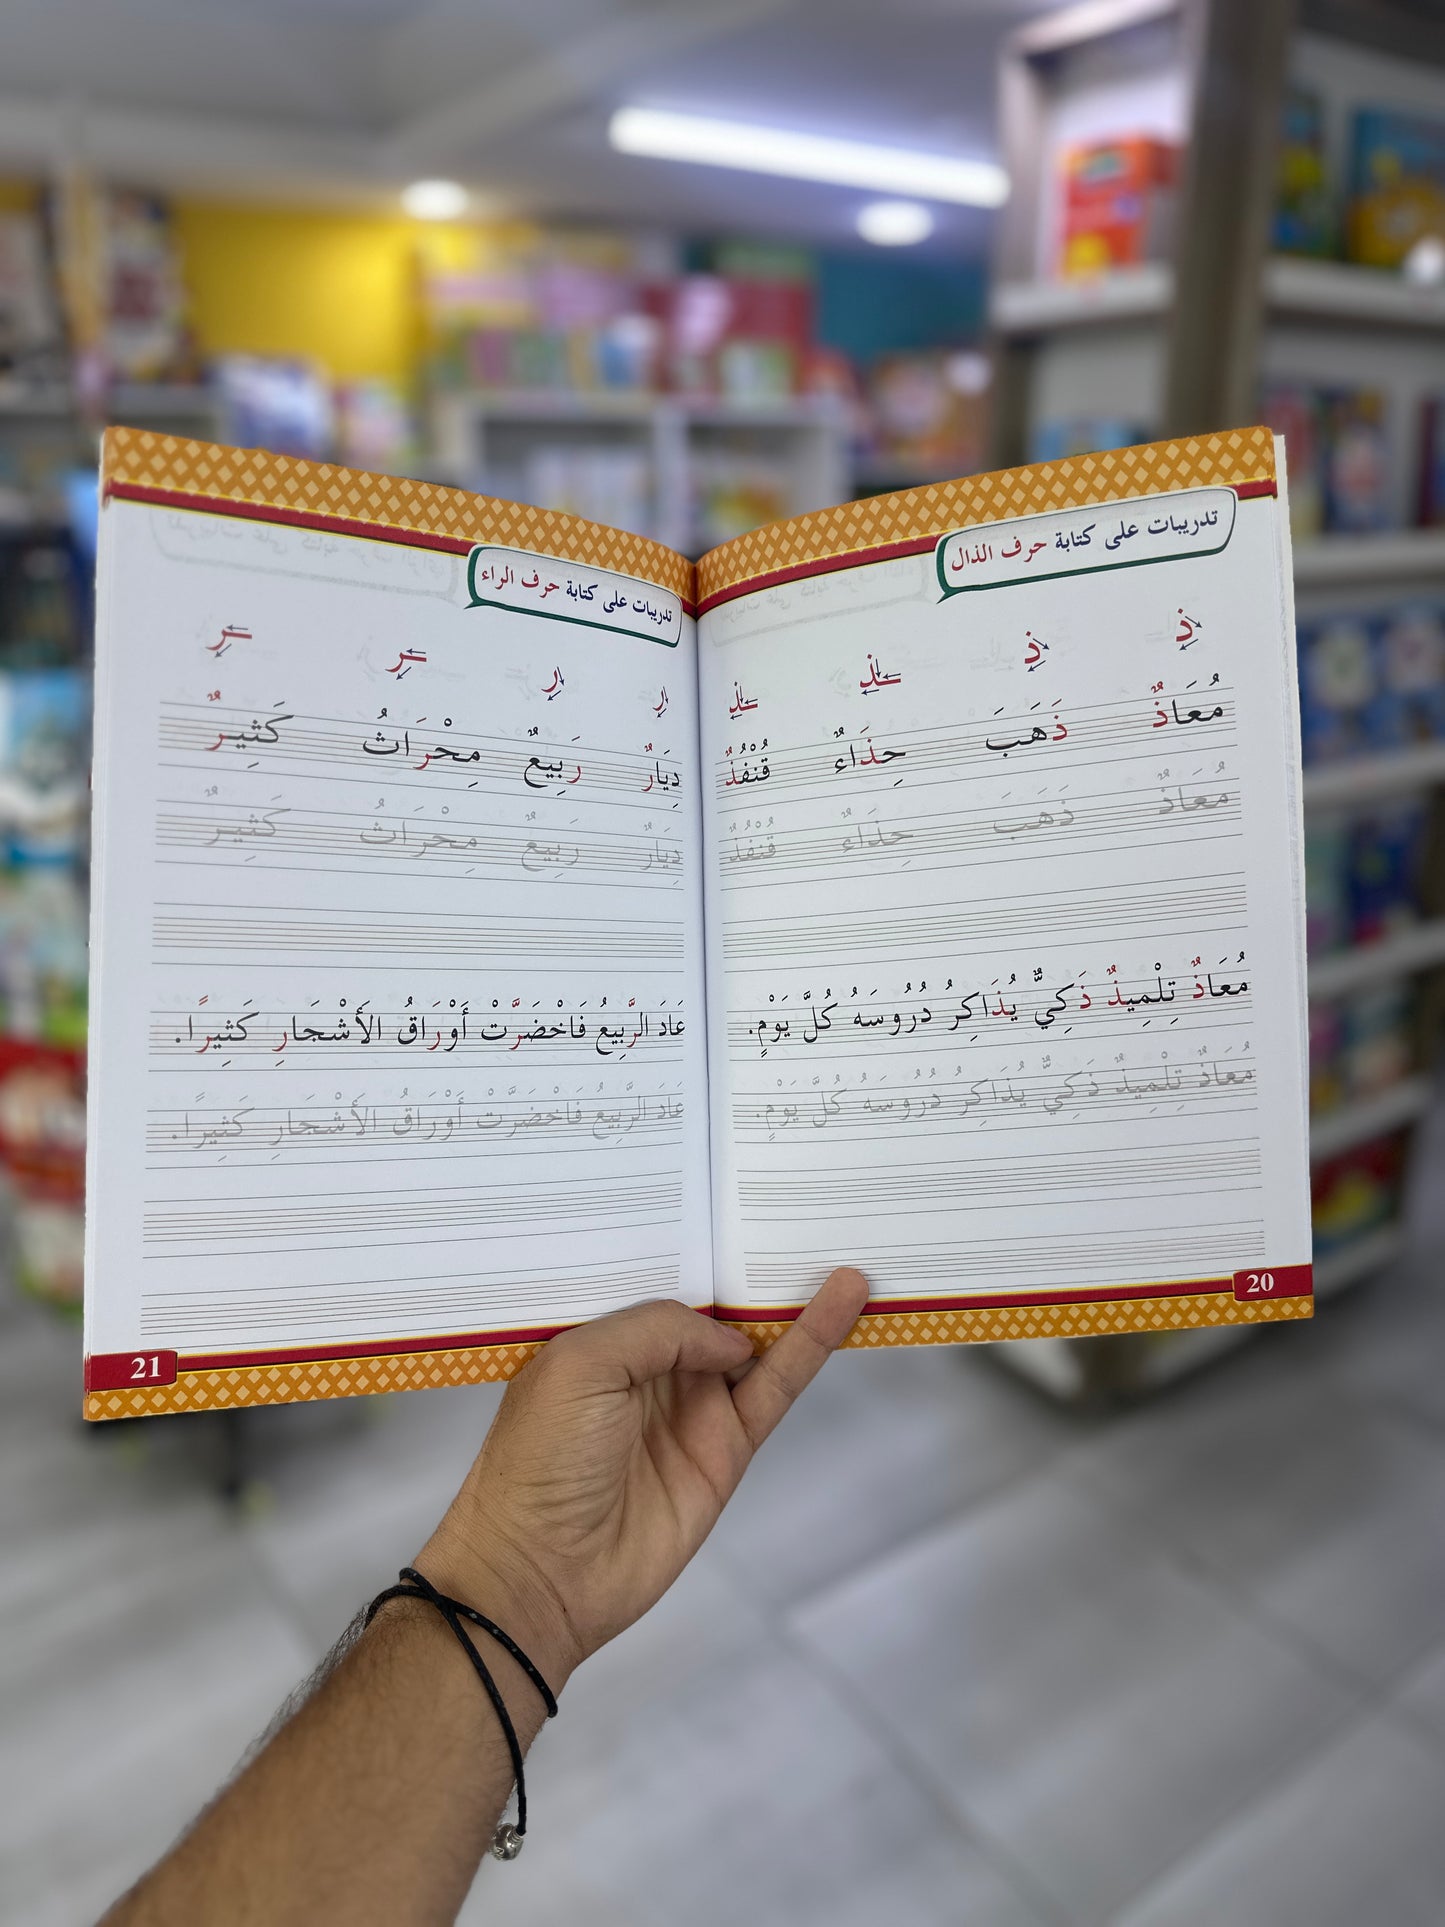 تدريبات على كتابة حرف الذال
ذ ذ ـذ ـذ
مُعَاذٌ ذَهَبَ حِذَاءٌ قُنْفُذٌ
مُعَاذٌ ذَهَبَ حِذَاءٌ قُنْفُذٌ
مُعَاذٌ تِلْمِيذٌ ذَكِيٌّ يُذَاكِرُ دُرُوسَهُ كُلَّ يَوْمٍ.
مُعَاذٌ تِلْمِيذٌ ذَكِيٌّ يُذَاكِرُ دُرُوسَهُ كُلَّ يَوْمٍ.
20
تدريبات على كتابة حرف الراء
ر ر ـر ـر
دِيَارٌ رَبِيعٌ مِحْرَاثٌ كَثِيرٌ
دِيَارٌ رَبِيعٌ مِحْرَاثٌ كَثِيرٌ
عَادَ الرَّبِيعُ فَاخْضَرَّتْ أَوْرَاقُ الأَشْجَارِ كَثِيرًا.
عَادَ الرَّبِيعُ فَاخْضَرَّتْ أَوْرَاقُ الأَشْجَارِ كَثِيرًا.
21